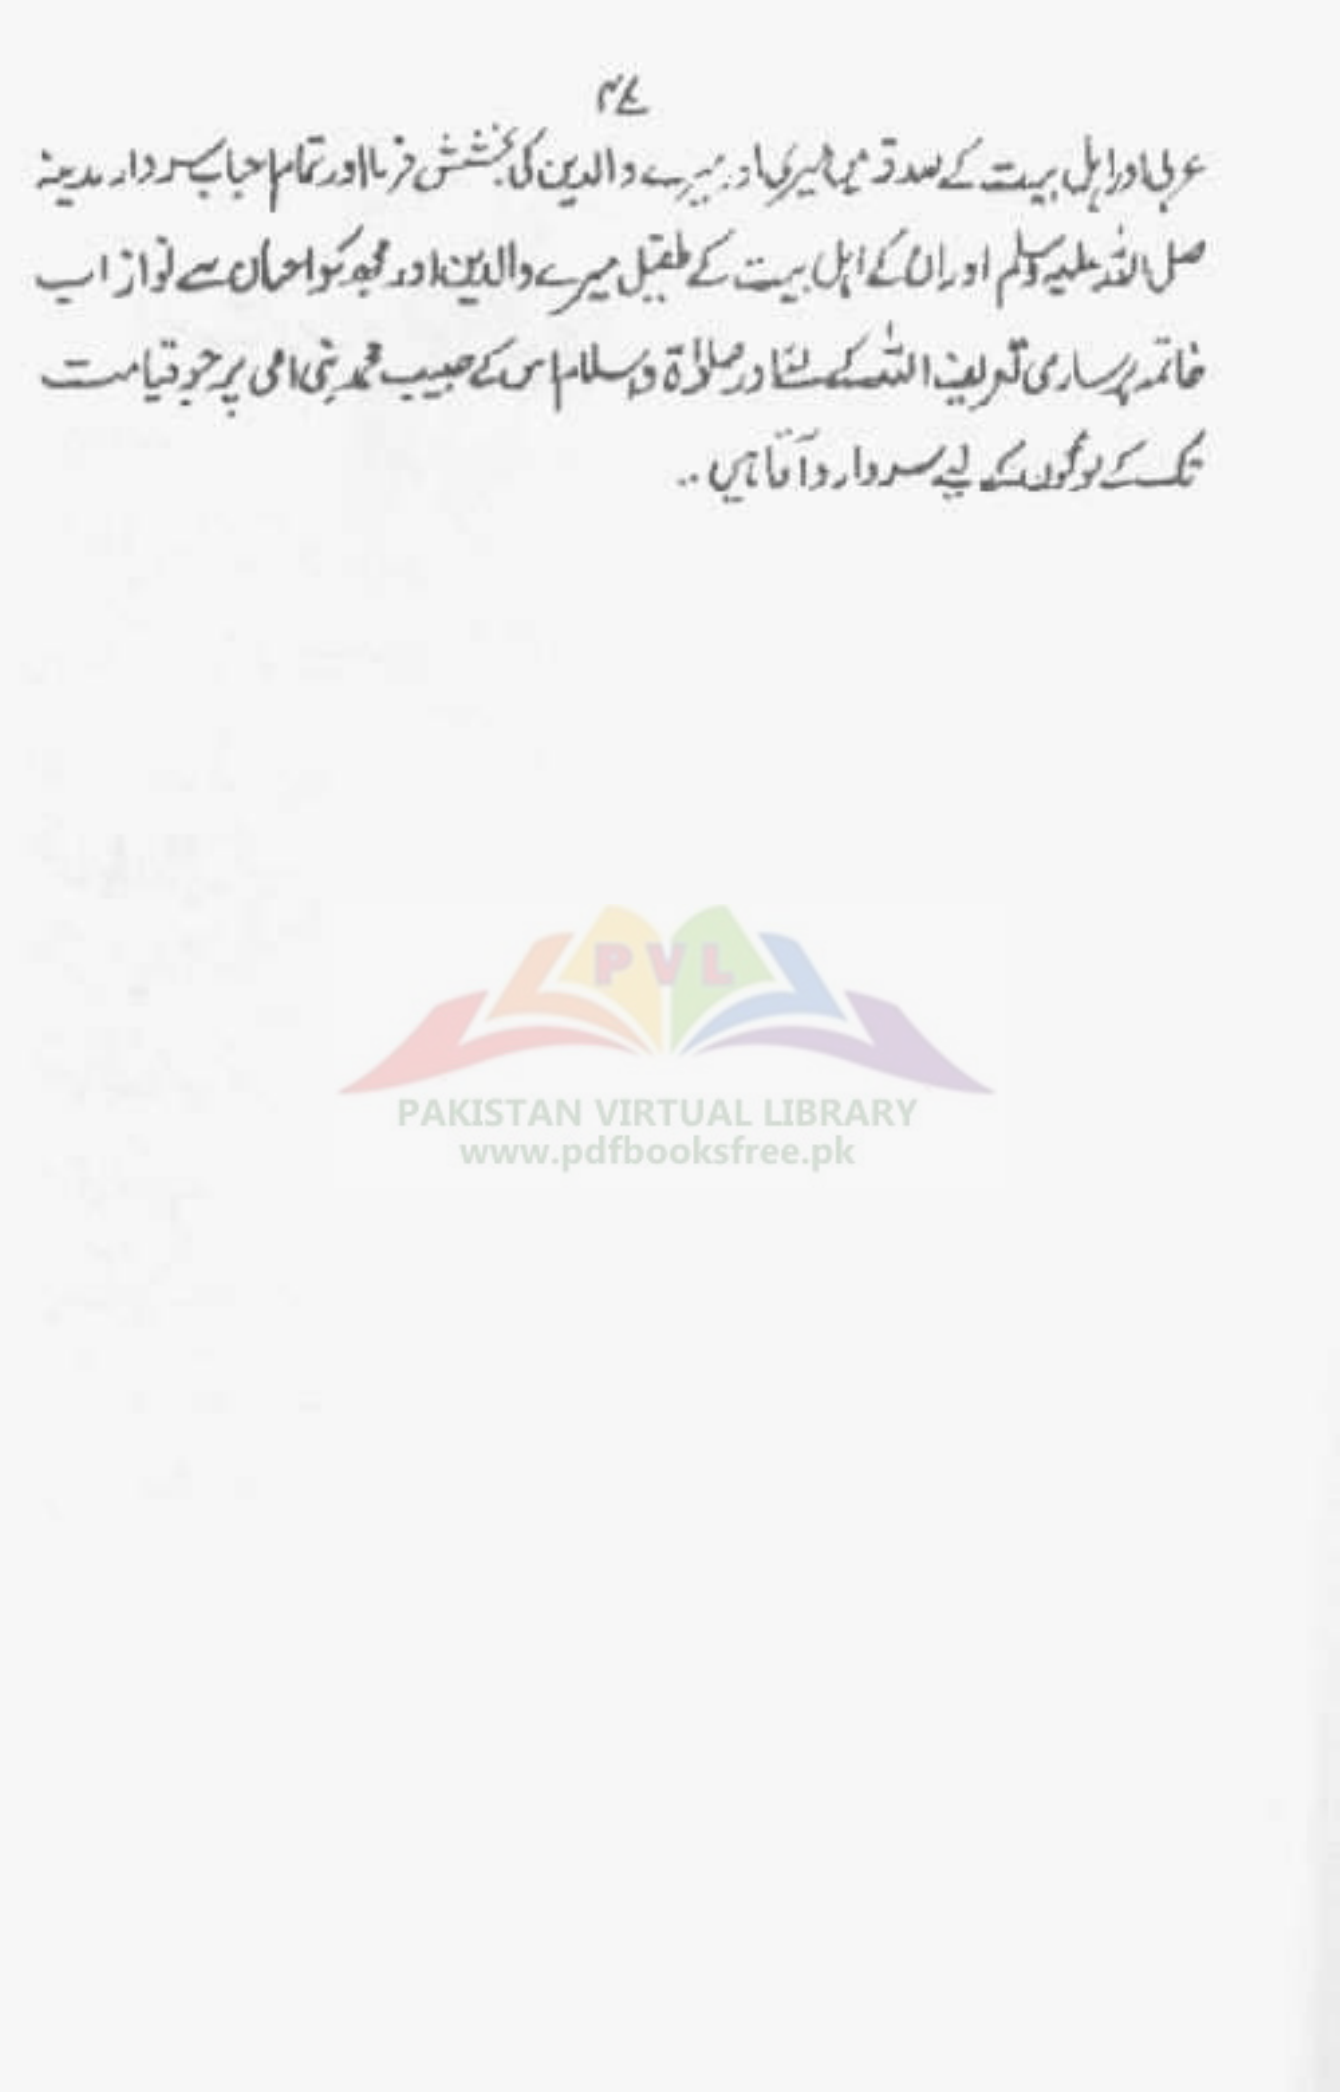 ۴۷
عربی اور اہل بیت کے صدقہ میں میری اور میرے والدین کی بخشش فرما اور تمام احباب سردار مدینہ
صلی اللہ علیہ وسلم اور ان کے اہل بیت کے طفیل میرے والدین اور مجھ کو احسان سے نواز اب
خاتمہ پر ساری تعریف اللہ کے لئے اور صلوٰۃ و سلام اس کے حبیب محمد نبی امی پر جو قیامت
تک کے لوگوں کے لیے سردار و آقا ہیں ..
PVL
PAKISTAN VIRTUAL LIBRARY
www.pdfbooksfree.pk